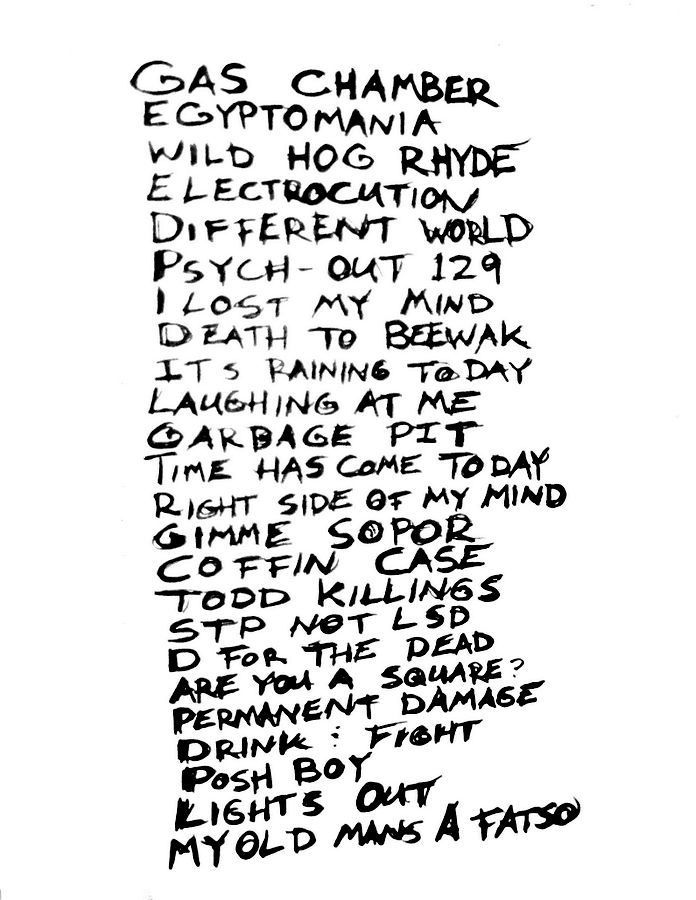 GAS CHAMBER
EGYPTOMANIA
WILD HOG RHYDE
ELECTROCUTION
DIFFERENT WORLD
PSYCH-OUT 129
I LOST MY MIND
DEATH TO BEEWAK
ITS RAINING TODAY
LAUGHING AT ME
GARBAGE PIT
TIME HAS COME TODAY
RIGHT SIDE OF MY MIND
GIMME SOPOR
COFFIN CASE
TODD KILLINGS
STP NOT LSD
D FOR THE DEAD
ARE YOU A SQUARE?
PERMANENT DAMAGE
DRINK : FIGHT
POSH BOY
LIGHTS OUT
MY OLD MANS A FATSO